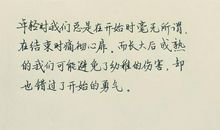 年轻时我们总是在开始时毫无所谓,
在结束时痛彻心扉。而长大后成熟
的我们可能避免了幼稚的伤害,却
也错过了开始的勇气。